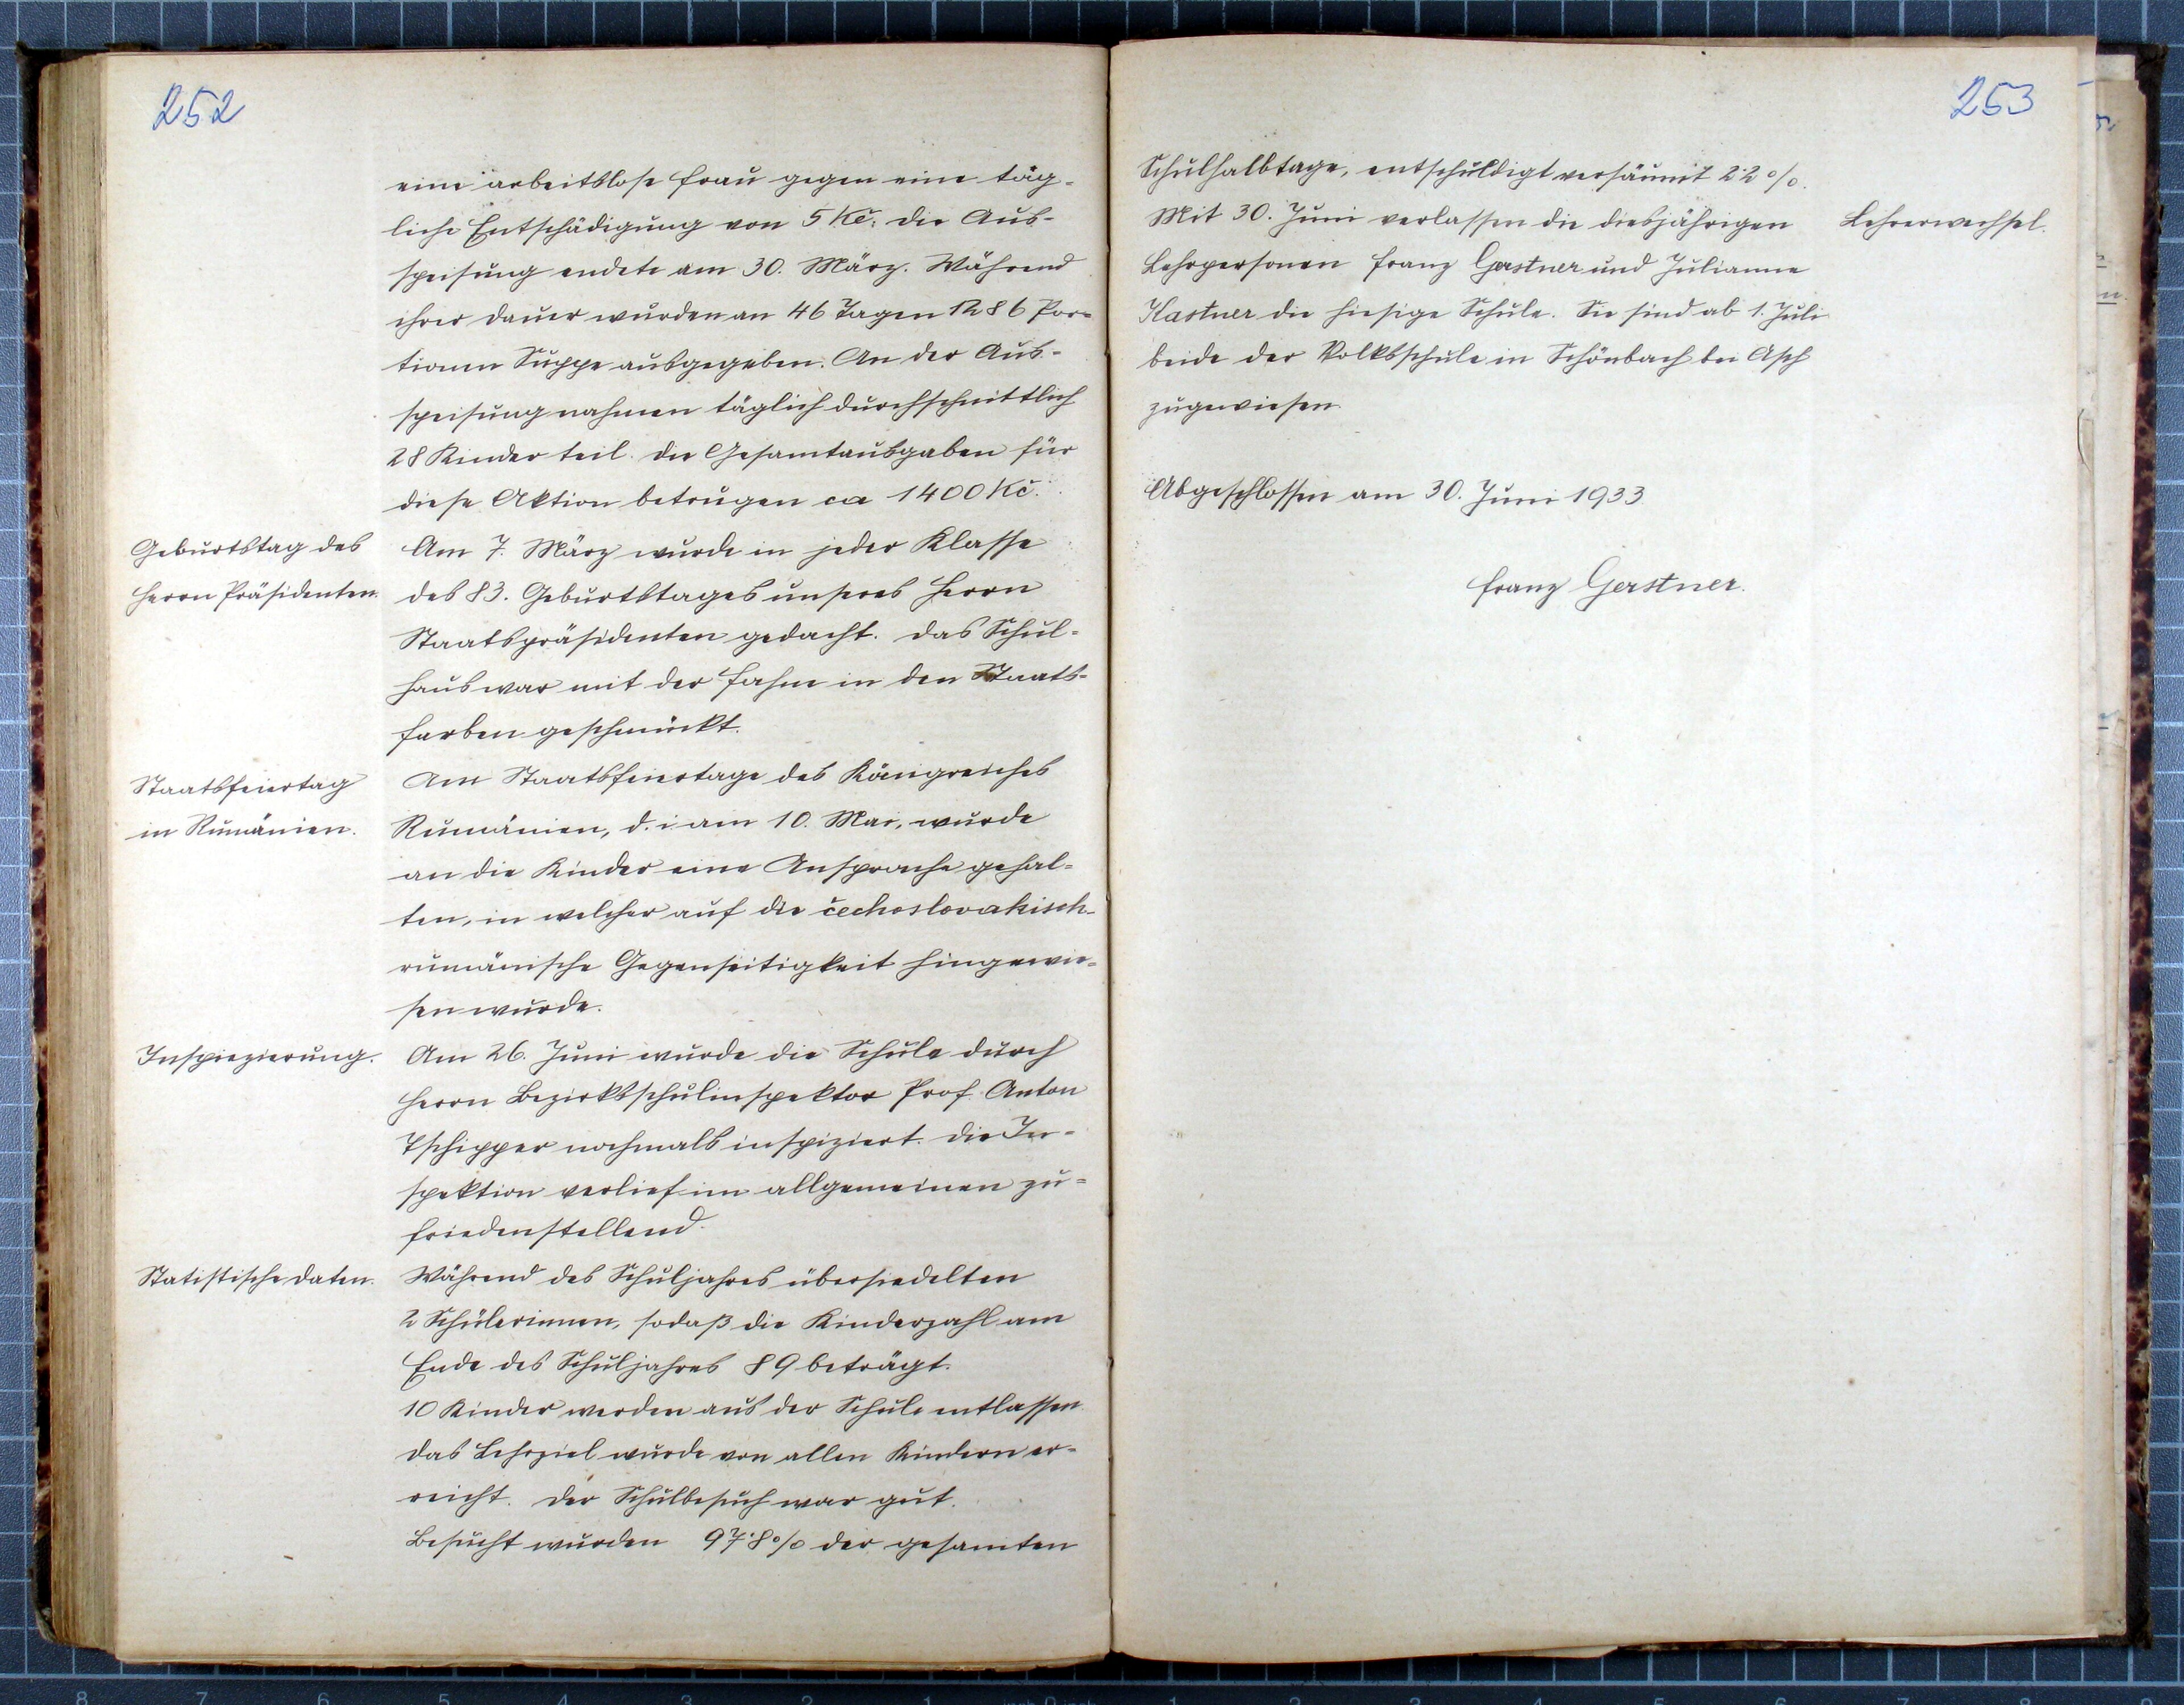 252
eine arbeitslose Frau gegen eine täg-
liche Entschädigung von 5 Kč. Die Aus-
speisung endete am 30. März. Während
ihrer Dauer wurden an 46 Tagen 1286 Por-
tionen Suppe ausgegeben. An der Aus-
speisung nahmen täglich durchschnittlich
28 Kinder teil. Die Gesamtausgaben für
diese Aktion betrugen ca 1400 Kč.
Geburtstag des
Herrn Präsidenten.
Am 7. März wurde in jeder Klasse
des 83. Geburtstages unseres Herrn
Staatspräsidenten gedacht. Das Schul-
haus war mit der Fahne in den Staats-
farben geschmückt.
Staatsfeiertag
in Rumänien.
Am Staatsfeiertage des Königreiches
Rumänien, d. i. am 10. Mai, wurde
an die Kinder eine Ansprache gehal-
ten, in welcher auf die čechoslovakisch-
rumänische Gegenseitigkeit hingewie-
sen wurde.
Inspiezierung.
Am 26. Juni wurde die Schule durch
Herrn Bezirksschulinspektor Prof. Anton
Tschipper nochmals inspiziert. Die In-
spektion verlief im allgemeinen zu-
friedenstellend.
Statistische Daten.
Während des Schuljahres übersiedelten
2 Schülerinnen, sodaß die Kinderzahl am
Ende des Schuljahres 89 beträgt.
10 Kinder werden aus der Schule entlassen.
Das Lehrziel wurde von allen Kindern er-
reicht. Der Schulbesuch war gut.
Besucht wurden 97·8% der gesamten
253
Schulhalbtage, entschuldigt versäumt 2·2%.
Mit 30. Juni verlassen die diesjährigen
Lehrerwechsel.
Lehrpersonen Franz Gerstner und Julianne
Kastner die hiesige Schule. Sie sind ab 1. Juli
beide der Volksschule in Schönbach bei Asch
zugewiesen.
Abgeschlossen am 30. Juni 1933
Franz Gerstner.